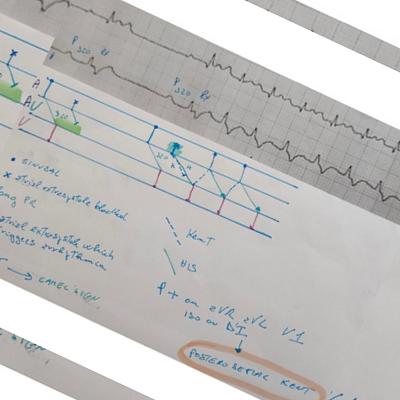 P
320 Rs
P
320 Rs
A
AV
V
320
320
• SINUSAL
x atrial extrasystole blocked
long PR
atrial extrasystole which
triggers arrhythmia
→ CAMEL SIGN
KENT
HIS
P+ on aVR aVL V1
ISO on DI
POSTERO SEPTAL KENT